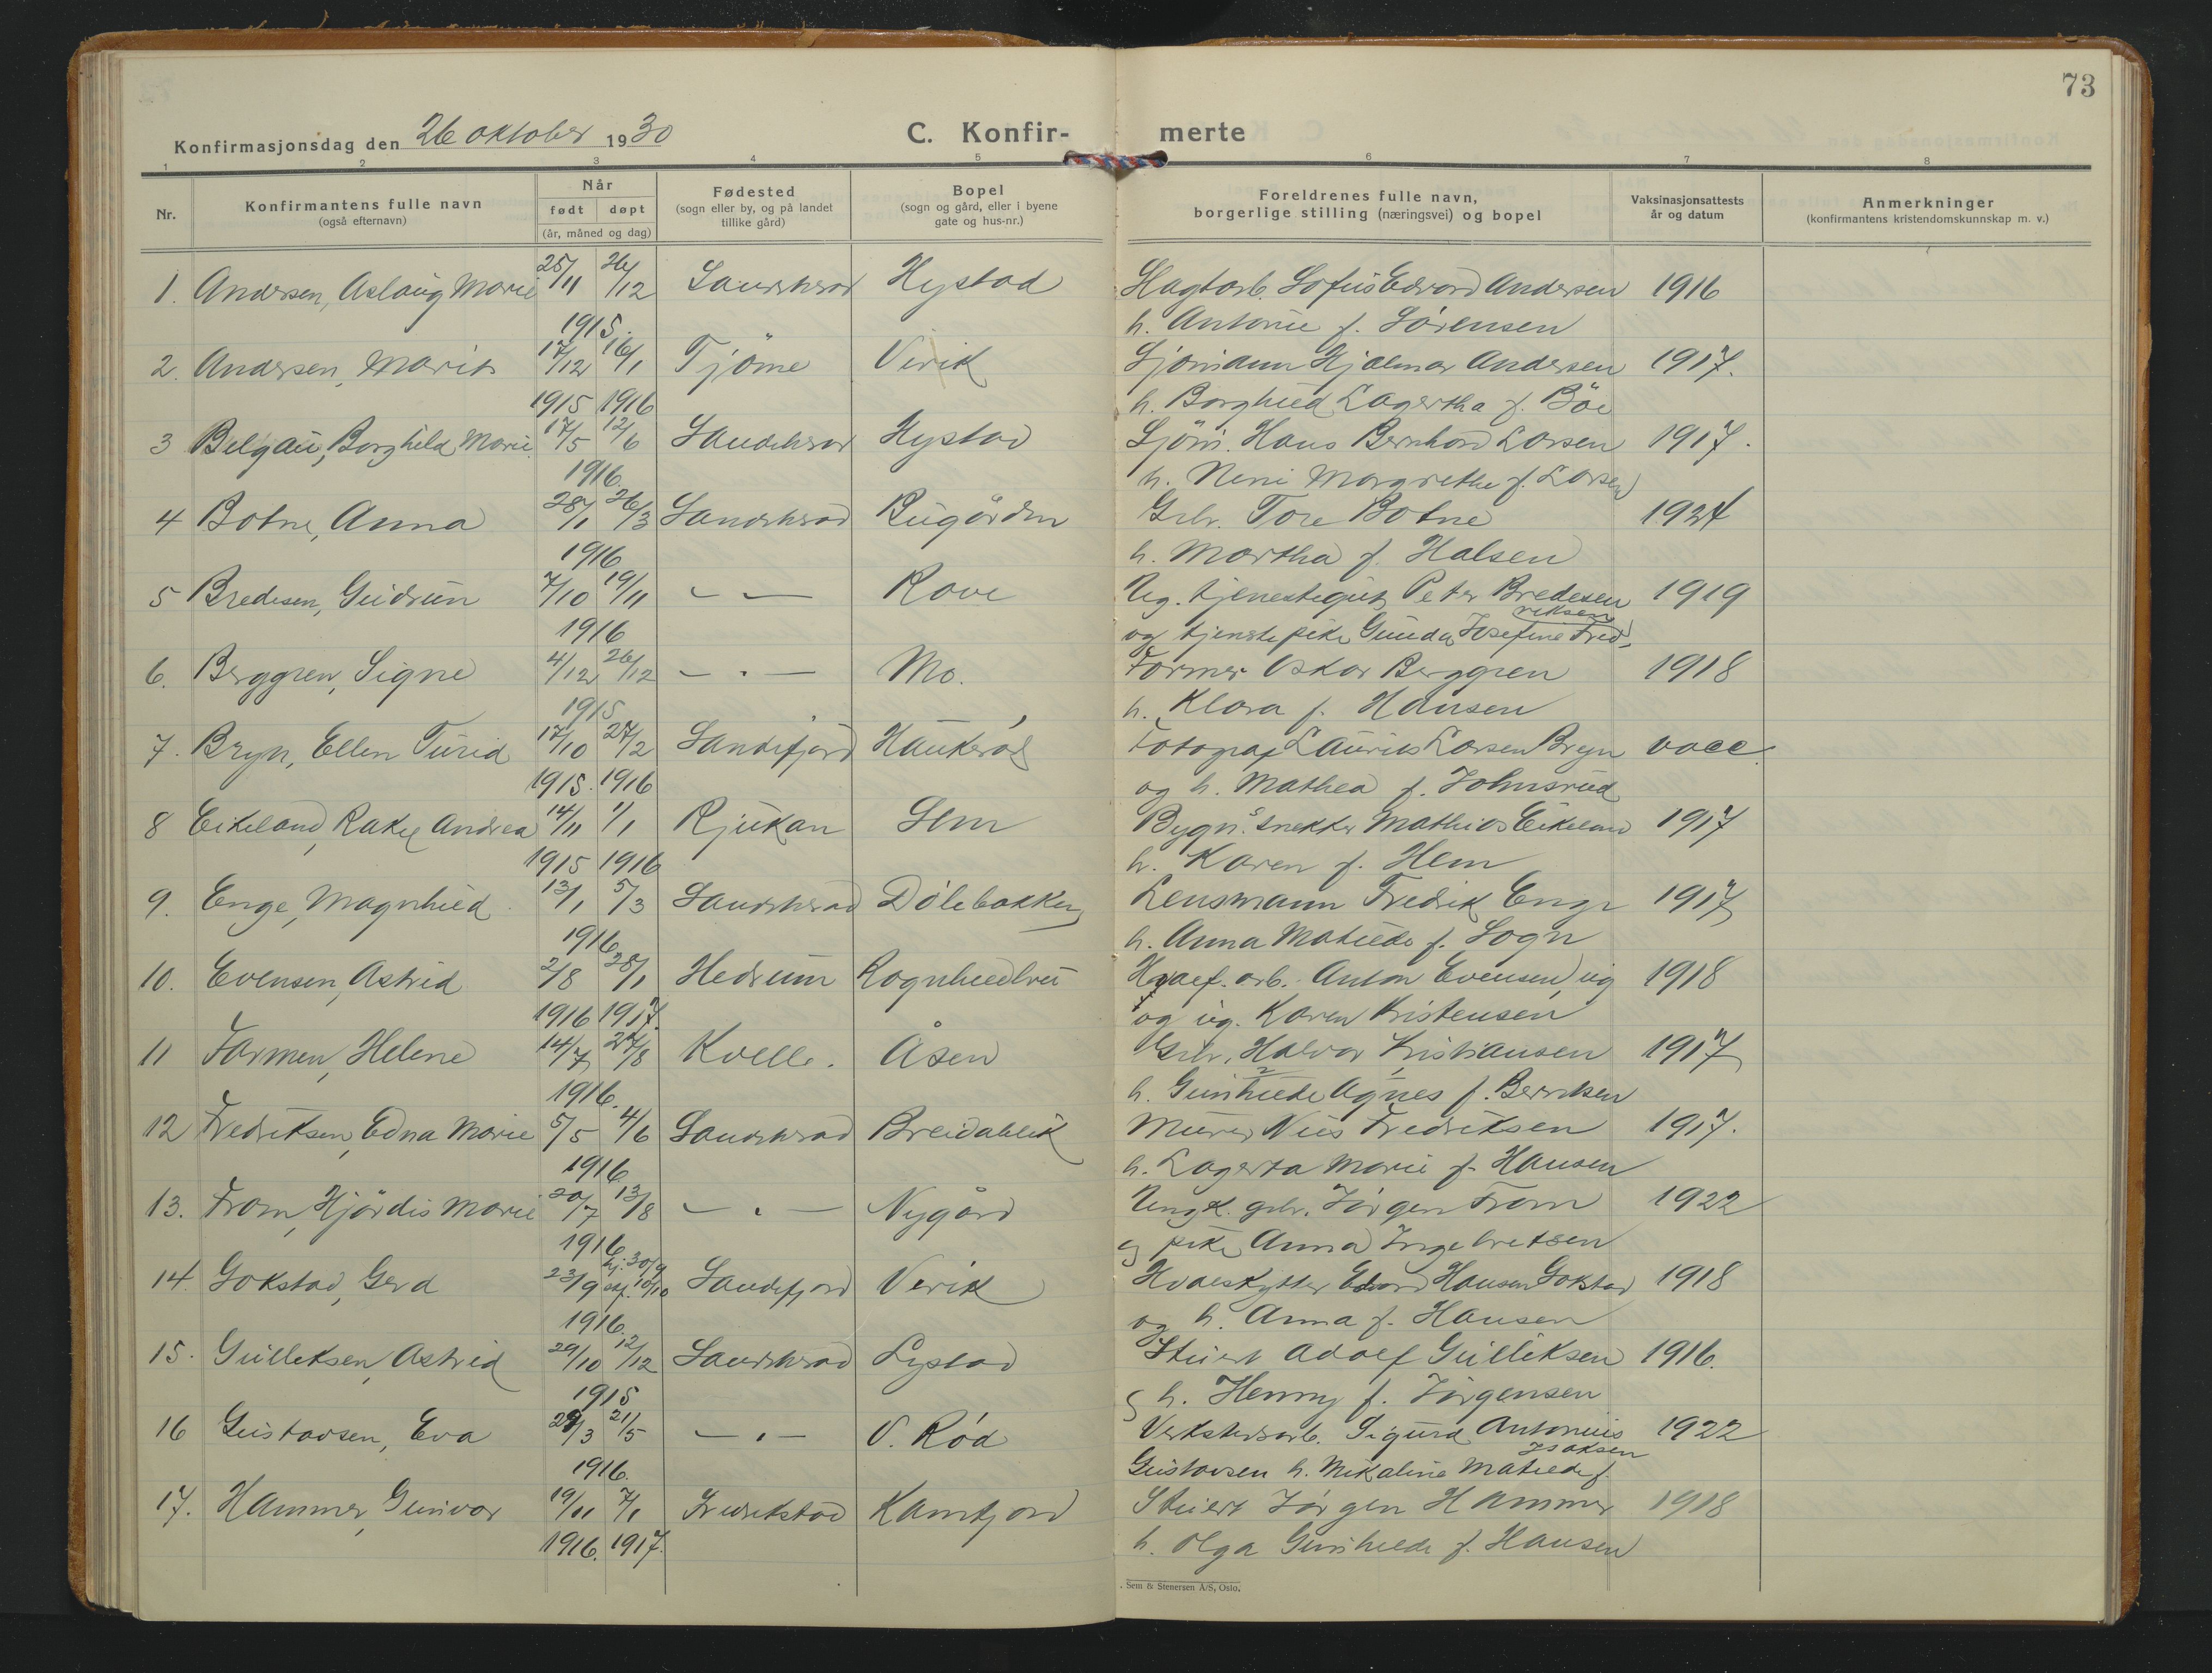 73
Konfirmasjonsdag den 26 oktober 1930
C. Konfir- merte
1 2 3 4 5 6 7 8
Nr.
Konfirmantens fulle navn
(også efternavn)
Når
født døpt
(år, måned og dag)
Fødested
(sogn eller by, og på landet
tillike gård)
Bopel
(sogn og gård, eller i byene
gate og hus-nr.)
Foreldrenes fulle navn,
borgerlige stilling (næringsvei) og bopel
Vaksinasjonsattests
år og datum
Anmerkninger
(konfirmantens kristendomskunnskap m. v.)
1. Andersen, Aslaug Marie 25/11 26/12 Sandeherad Hystad Sofus Edvard Andersen 1916
1915. h. Antonie f. Sørensen
2. Andersen, Marit 17/12 16/1 Tjöme Virik Sjømann Hjalmar Andersen 1917.
1915 1916 h. Borghild Lagertha f. Böe
3 Belgau, Borghild Marie 17/5 12/6 Sandeherad Hystad Sjöm. Hans Bernhard Larsen 1917.
1916. h. Neni Margrethe f. Larsen
4 Botne, Anna 28/1 26/3 Sandeherad Bugården Grbr. Tore Botne 1924
1916 h. Martha f. Halsen
5 Bredesen, Gudrun 7/10 19/11 — — Rove Ug. tjenestegut Peter Bredesen 1919
1916 og tjenestepike Gunda Josefine Fred-
riksen
6. Berggren, Signe 4/12 26/12 — . — Mo. Former Oskar Berggren 1918
1915 h. Klara f. Hansen
7. Bryn, Ellen Turid 17/10 27/2 Sandefjord Haukerød Fotograf Laurits Larsen Bryn vacc.
1915. 1916 og h. Mathea f. Johnsrud
8 Eikeland, Rakel Andrea 14/11 1/1 Rjukan Sem Bygn. snekker Mathias Eikeland 1917
1915 1916 h. Karen f. Hem
9. Enge, Magnhild 13/1 5/3 Sandeherad Dølebakken Lensmann Fredrik Enge 1917
1916 h. Anna Matilde f. Sogn
10. Evensen, Astrid 2/8 28/1 Hedrum Rognhildbru Hvalf. arb. Anton Evensen, ug 1918
1916 1917. og ug. Karen Kristensen
11 Farmen, Helene 14/7 27/8 Kvelle. Åsen Grbr. Halvor Kristiansen 1917
1916. h. Gunhilde Agnes f. Berntsen
12 Fredriksen, Edna Marie 5/5 4/6 Sandeherad Breidablik Murer Nils Fredriksen 1917.
1916 h. Lagerta Marie f. Hansen
13. From, Hjördis Marie 20/7 13/8 — . — Nygård Ungk. grbr. Jörgen From 1922
1916 og pike Anna Ingebretsen
14. Gokstad, Gerd 23/9 hj. 30/9 Sandefjord Virik Hvalskytter Edvard Hansen Gokstad 1918
1916. 10/10 og h. Anna f. Hansen
15. Gulliksen, Astrid 29/10 12/12 Sandeherad Lystad Stuert Adolf Gulliksen 1916.
1915 og h. Henny f. Jörgensen
16 Gustavsen, Eva 29/3 21/5 — . — V. Rød Verkstedsarb. Sigurd Antonius 1922
1916. Gustavsen h. Mikaline Matilde f. Isaksen
17. Hammer, Gunvor 19/11 7/1 Fredrikstad Kamfjord Stuert Jörgen Hammer 1918
1916. 1917. h. Olga Gunhilde f. Hansen
Sem & Stenersen A/S, Oslo.